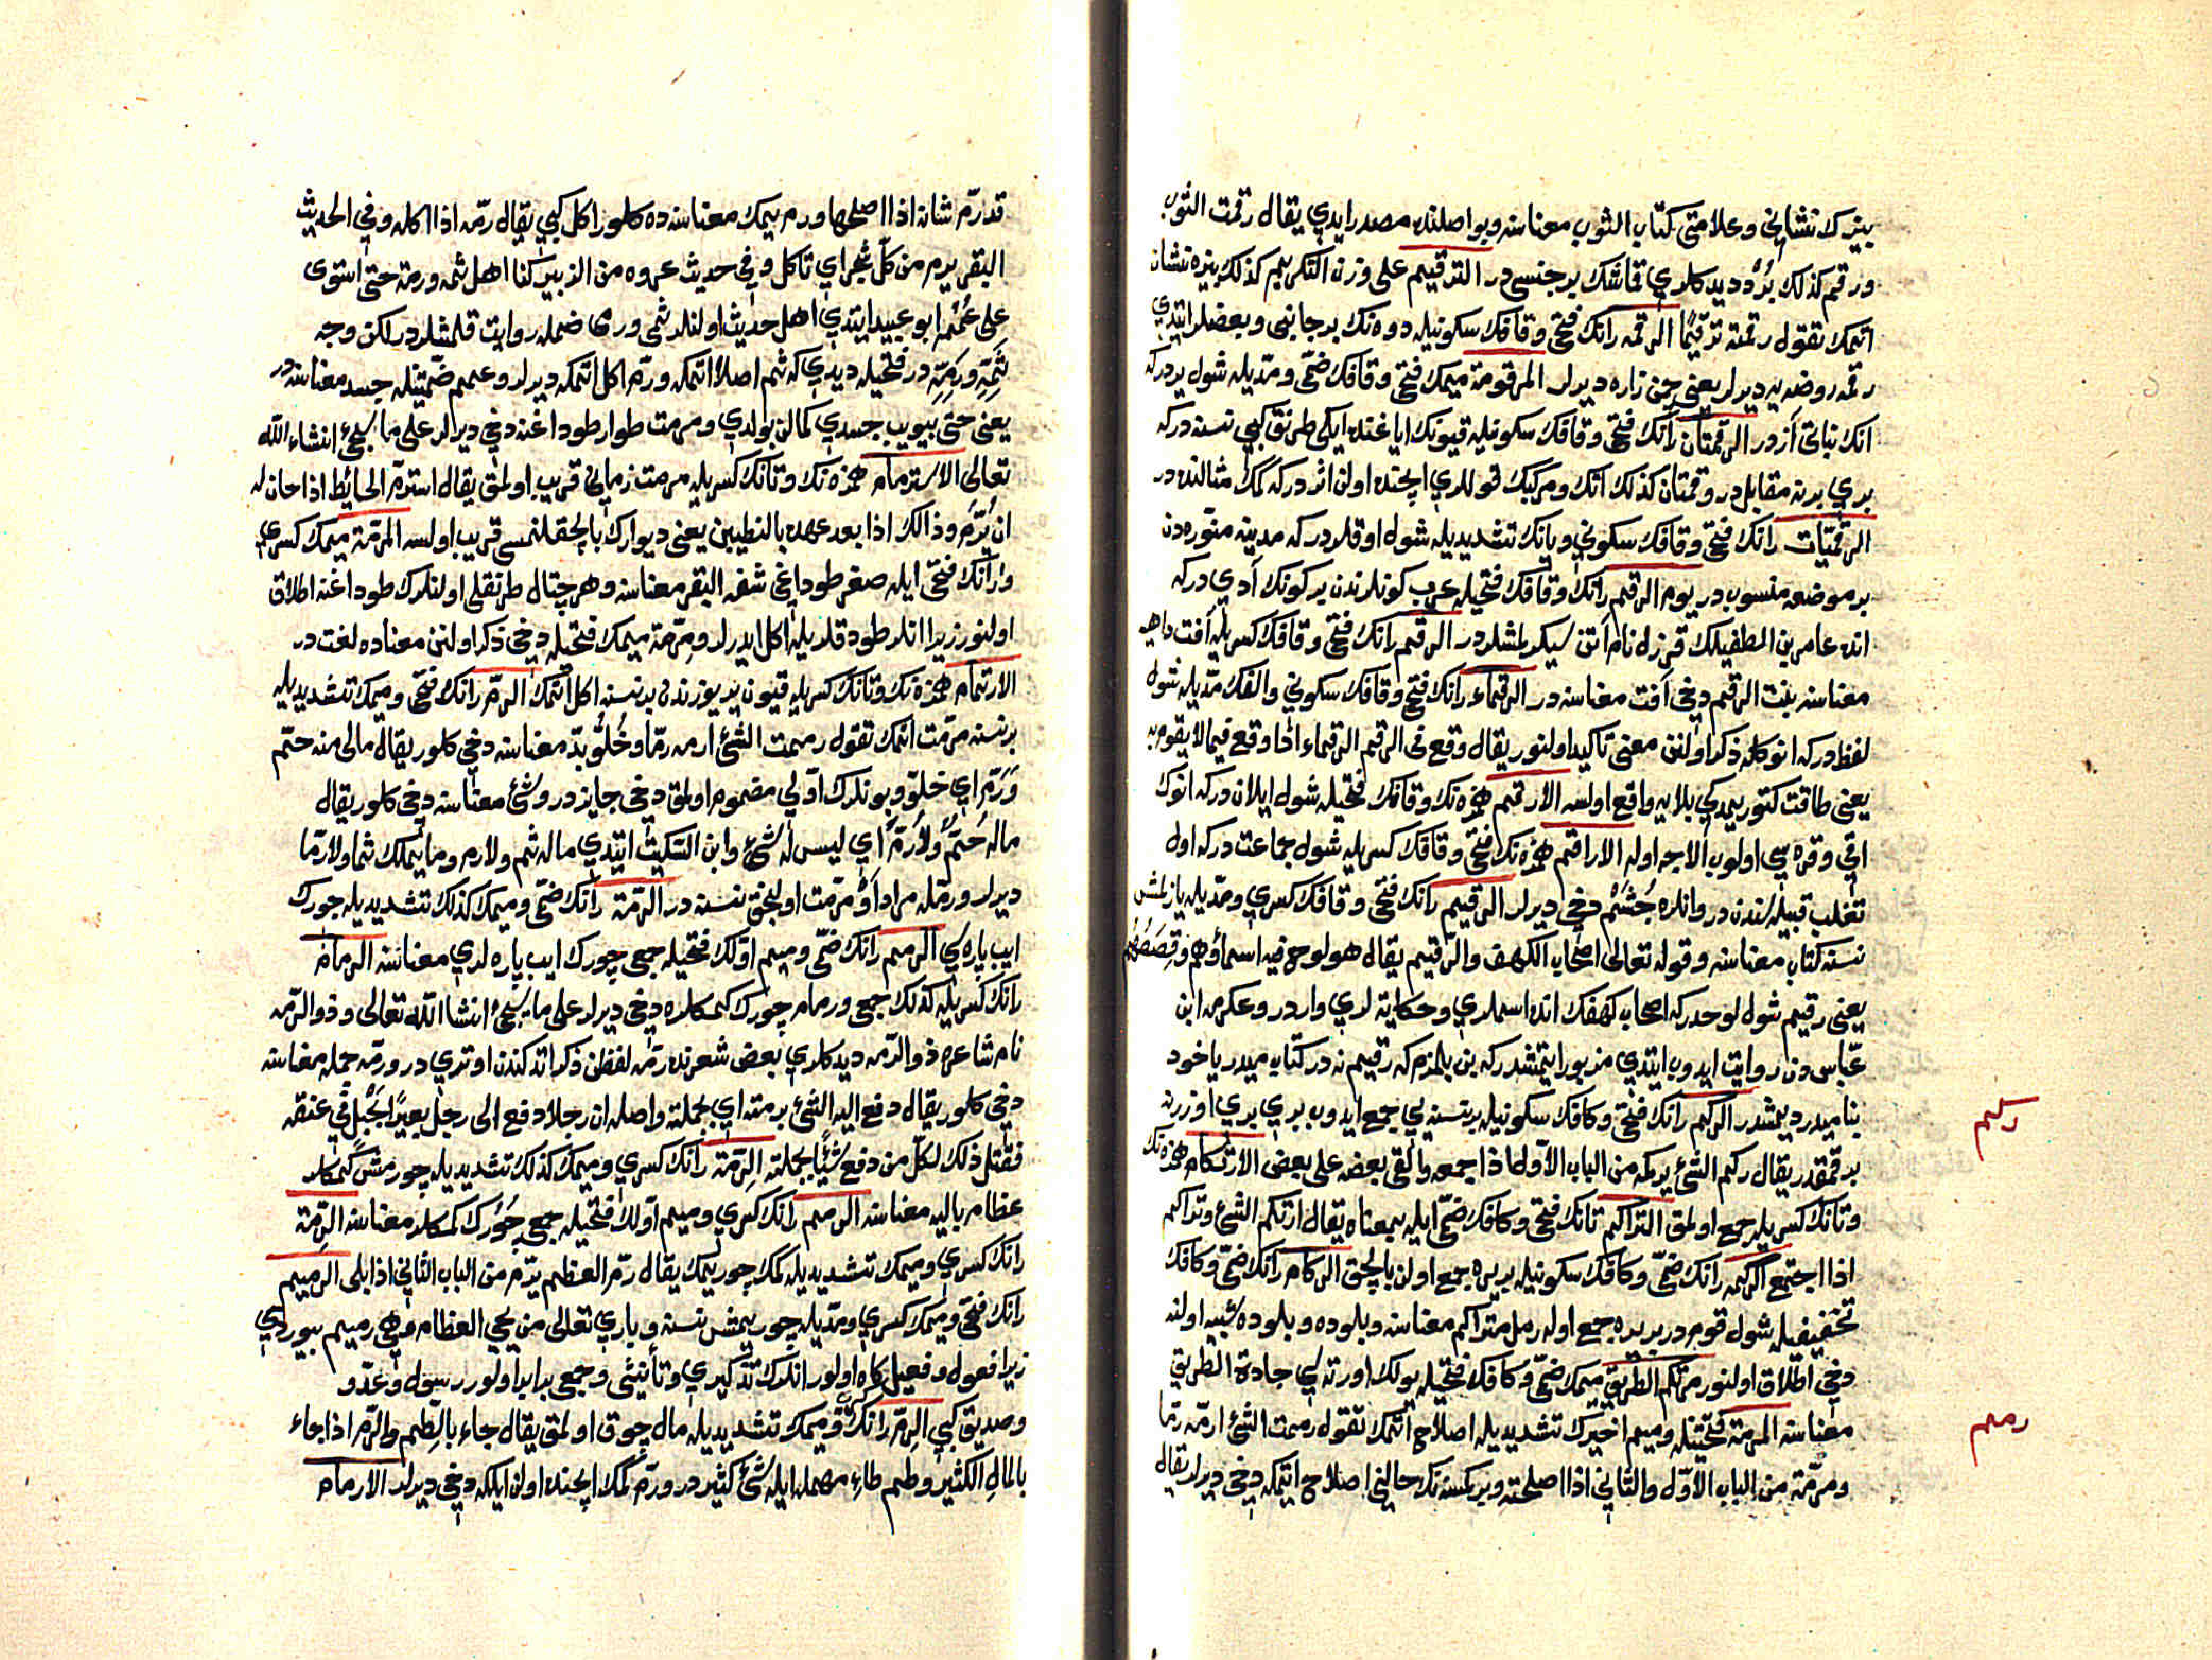 بيزك نشاني وعلامتي كتاب الثوب معناسنه وبو اصلنده مصدر ايدي يقال رقمت الثوب
ورقم كذلك برد ديدكلري قماشك بر جنسى در الترقيم على وزن التكريم كذلك بزه نشان
اتمك تقول رقمته ترقيما الرقمه رانك فتحى وقافك سكونيله دره نك بر جانبى وبعضلر ايتدي
رقمه روضه يه ديرلر يعني چمن زاره ديرلر المرقومة ميمك فتحى وقافك ضمى ومديله شول يردر كه
انك نباتى از در الرقمتان رانك فتحى وقافك سكونيله قيونك اياغنده ايكى طرنق كبي نسنه در كه
بري برنه مقابل در ورقمتان كذلك اتك ومركبك قوللري ايچنده اولن اثر در كه كمك مثالنده در
الرقميات رانك فتحى وقافك سكوني ويانك تشديديله شول اوقلر در كه مدينه منوره دن
بر موضعه منسوب در يوم الرقم رانك وقافك فتحيله عرب كونلرندن بر كونك آدي در كه
انده عامر بن الطفيلك قرزل نام اتن سيكرلمشلردر الرقم رانك فتحى وقافك كسريله آفت داهيه
معناسنه بنت الرقم دخي آفت معناسنه در الرقماء رانك فتحى وقافك سكوني والفك مديله شول
لفظ در كه انوكله ذكر اولنن معنى تاكيد اولنور يقال وقع فى الرقم الرقماء اذا وقع فيما لا يقوم به
يعني طاقت كتوريمدكي بلايه واقع اولسه الارقم همزه نك وقافك فتحيله شول ايلان در كه انوك
اقي وقره سي اولوب الاجه اوله الاراقم همزه نك فتحى وقافك كسريله شول جماعت در كه اول
تغلب قبيله سندن در وانلره جشم دخي ديرلر الرقيم رانك فتحى وقافك كسري ومديله يازلمش
نسنه كتاب معناسنه وقوله تعالى اصحاب الكهف والرقيم يقال هو لوح فيه اسماؤهم وقصصهم
يعني رقيم شول لوحدر كه اصحاب كهفك انده اسملري وحكايه لري واردر وعكرمه ابن
عباس دن روايت ايدوب ايتدي مزبور ايتمشدر كه بن بلمزم كه رقيم نه در كتاب ميدر ياخود
بنا ميدر ديمشدر الركم رانك فتحى وكافك سكونيله بر نسنه يي جمع ايدوب بري بري اوزرينه
برقمقدر يقال ركم الشئ يركمه من الباب الاول اذا جمعه والقى بعضه على بعض الارتكام همزه نك
وتانك كسريله جمع اولمق التراكم تانك فتحى وكافك ضمى ايله بمعناه يقال ارتكم الشئ وتراكم
اذا اجتمع الركمه رانك ضمى وكافك سكونيله بر يره جمع اولن بالچق الركام رانك ضمى وكافك
تخفيفيله شول قومدر بر يره جمع اوله رمل متراكم معناسنه وبلوده وبلوده شبيه اولنه
دخي اطلاق اولنور مرتكم الطريق ميمك ضمى وكافك فتحيله يولك اورته سي جادة الطريق
معناسنه المرمة فتحتيله وميم اخيرك تشديديله اصلاح اتمك تقول رممت الشئ ارمه رما
ومرمة من الباب الاول والثاني اذا اصلحته وبر كسنه نك حالني اصلاح ايتمكه دخي ديرلر يقال
ركم
رمم
قد رم شانه اذا اصلحها ورم ييمك معناسنده كلور اكل كبي يقال رمه اذا اكله وفي الحديث
البقر يرم من كل شجر اي تاكل وفي حديث عروه من الزبير كنا اهل ثمه ورمه حتى استوى
على عممه ابو عبيد ايتدي اهل حديث اولنلر ثمى ورمى ضمله روايت قلمشلردر لكن وجه
ثمه ورمه در فتحيله ديدي كه ثم اصلا اتمكه ورم اكل اتمكه ديرلر وعمم ضمتيله جسد معناسنه در
يعني حتى بيويب جسدي كمالن بولدي ومرمت طوار طوداغنه دخي ديرلر على ما سيجئ انشاء الله
تعالى الاسترمام همزه نك وتانك كسريله مرمت زماني قريب اولمق يقال استرم الحائط اذا حان له
ان يرم وذلك اذا بعد عهده بالتطيين يعني ديوارك بالچقلنمسى قريب اولسه المرمة ميمك كسري
ورانك فتحى ايله صغر طوداغي شفه البقر معناسنه وهر چتال طرنقلى اولنلرك طوداغنه اطلاق
اولنور زيرا انلر طودقلريله اكل ايدرلر ومرمة ميمك فتحيله دخي ذكر اولنن معناده لغت در
الارتمام همزه نك وتانك كسريله قيون ير يوزندن بر نسنه اكل اتمك الرم رانك فتحى وميمك تشديديله
بر نسنه مرمت اتمك تقول رممت الشئ ارمه رما وخلو بد معناسنه دخي كلور يقال مالى منه حتم
ورم اي خلو وبونلرك اولي مضموم اولمق دخي جايزدر وشئ معناسنه دخي كلور يقال
ماله حتم ولا رم اي ليس له شئ وابن السكيت ايتدي ماله ثم ولا رم وما يملك ثما ولا رما
ديرلر ورمله مراد او مرمت اولنجق نسنه در الرمة رانك ضمى وميمك كذلك تشديديله چورك
ايب پاره سي الرمم رانك ضمى وميم اولك فتحيله جمعى چورك ايب پاره لري معناسنه الرمام
رانك كسريله كذلك جمعى ورمام چورك كمكلره دخي ديرلر على ما سيجئ انشا الله تعالى وذو الرمه
نام شاعره ذو الرمه ديدكلري بعض شعرنده رمه لفظن ذكر اتدكندن اوتري در ورمه جمله معناسنه
دخي كلور يقال دفع اليه الشئ برمته اي بجملته واصله ان رجلا دفع الى رجل بعيرا بحبل في عنقه
فقيل ذلك لكل من دفع شيئا بجملته الرمة رانك كسري وميمك كذلك تشديديله چورمش كمكلر
عظام باليه معناسنه الرمم رانك كسري وميم اولك فتحيله جمعى چورك كمكلر معناسنه الرمة
رانك كسري وميمك تشديديله كمك چوريمك يقال رم العظم يرم من الباب الثاني اذا بلى الرميم
رانك فتحى وميمك كسري ومديله چوريمش نسنه وباري تعالى من يحي العظام وهي رميم بيوردي
زيرا فعول وفعيل كاه اولور انلرك تذكيري وتأنيثى وجمعى برابر اولور رسول وعدو
وصديق كبي الرم رانك كسرى وميمك تشديديله مال چوق اولمق يقال جاء بالطم والرم اذا جاء
بالمال الكثير وطم طاء مهمله ايله شئ كثير در ورم كمك ايچنده اولن ايلكه دخي ديرلر الارمام